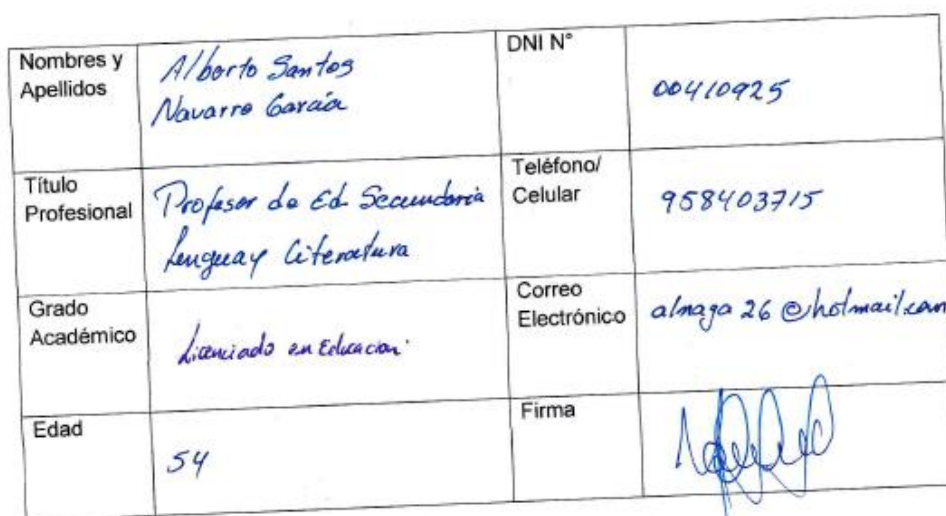 Nombres y Apellidos
Alberto Santos
Navarro García
DNI N°
00410925
Título Profesional
Profesor de Ed. Secundaria
Lengua y Literatura
Teléfono/ Celular
958403715
Grado Académico
Licenciado en Educacion.
Correo Electrónico
alnaga 26 @hotmail.com
Edad
54
Firma